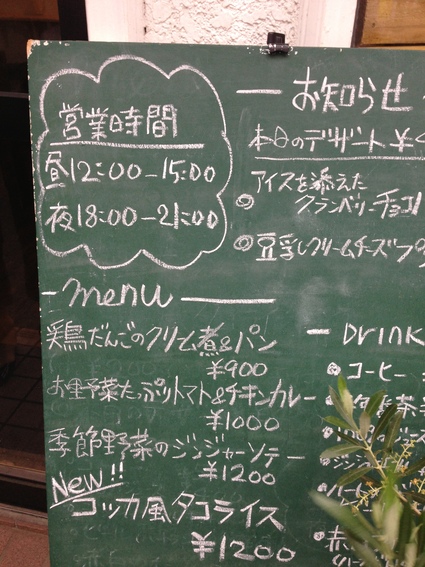 営業時間
昼12:00-15:00
夜18:00-21:00
お知らせ
本日のデザート ¥
アイスを添えた
クランベリーチョコ
豆乳クリームチーズ
menu
鶏だんごのクリーム煮&パン
¥900
お野菜たっぷりトマト&チキンカレー
¥1000
季節野菜のジンジャーソテー
¥1200
New!!
コッカ風タコライス
¥1200
DRINK
コーヒー